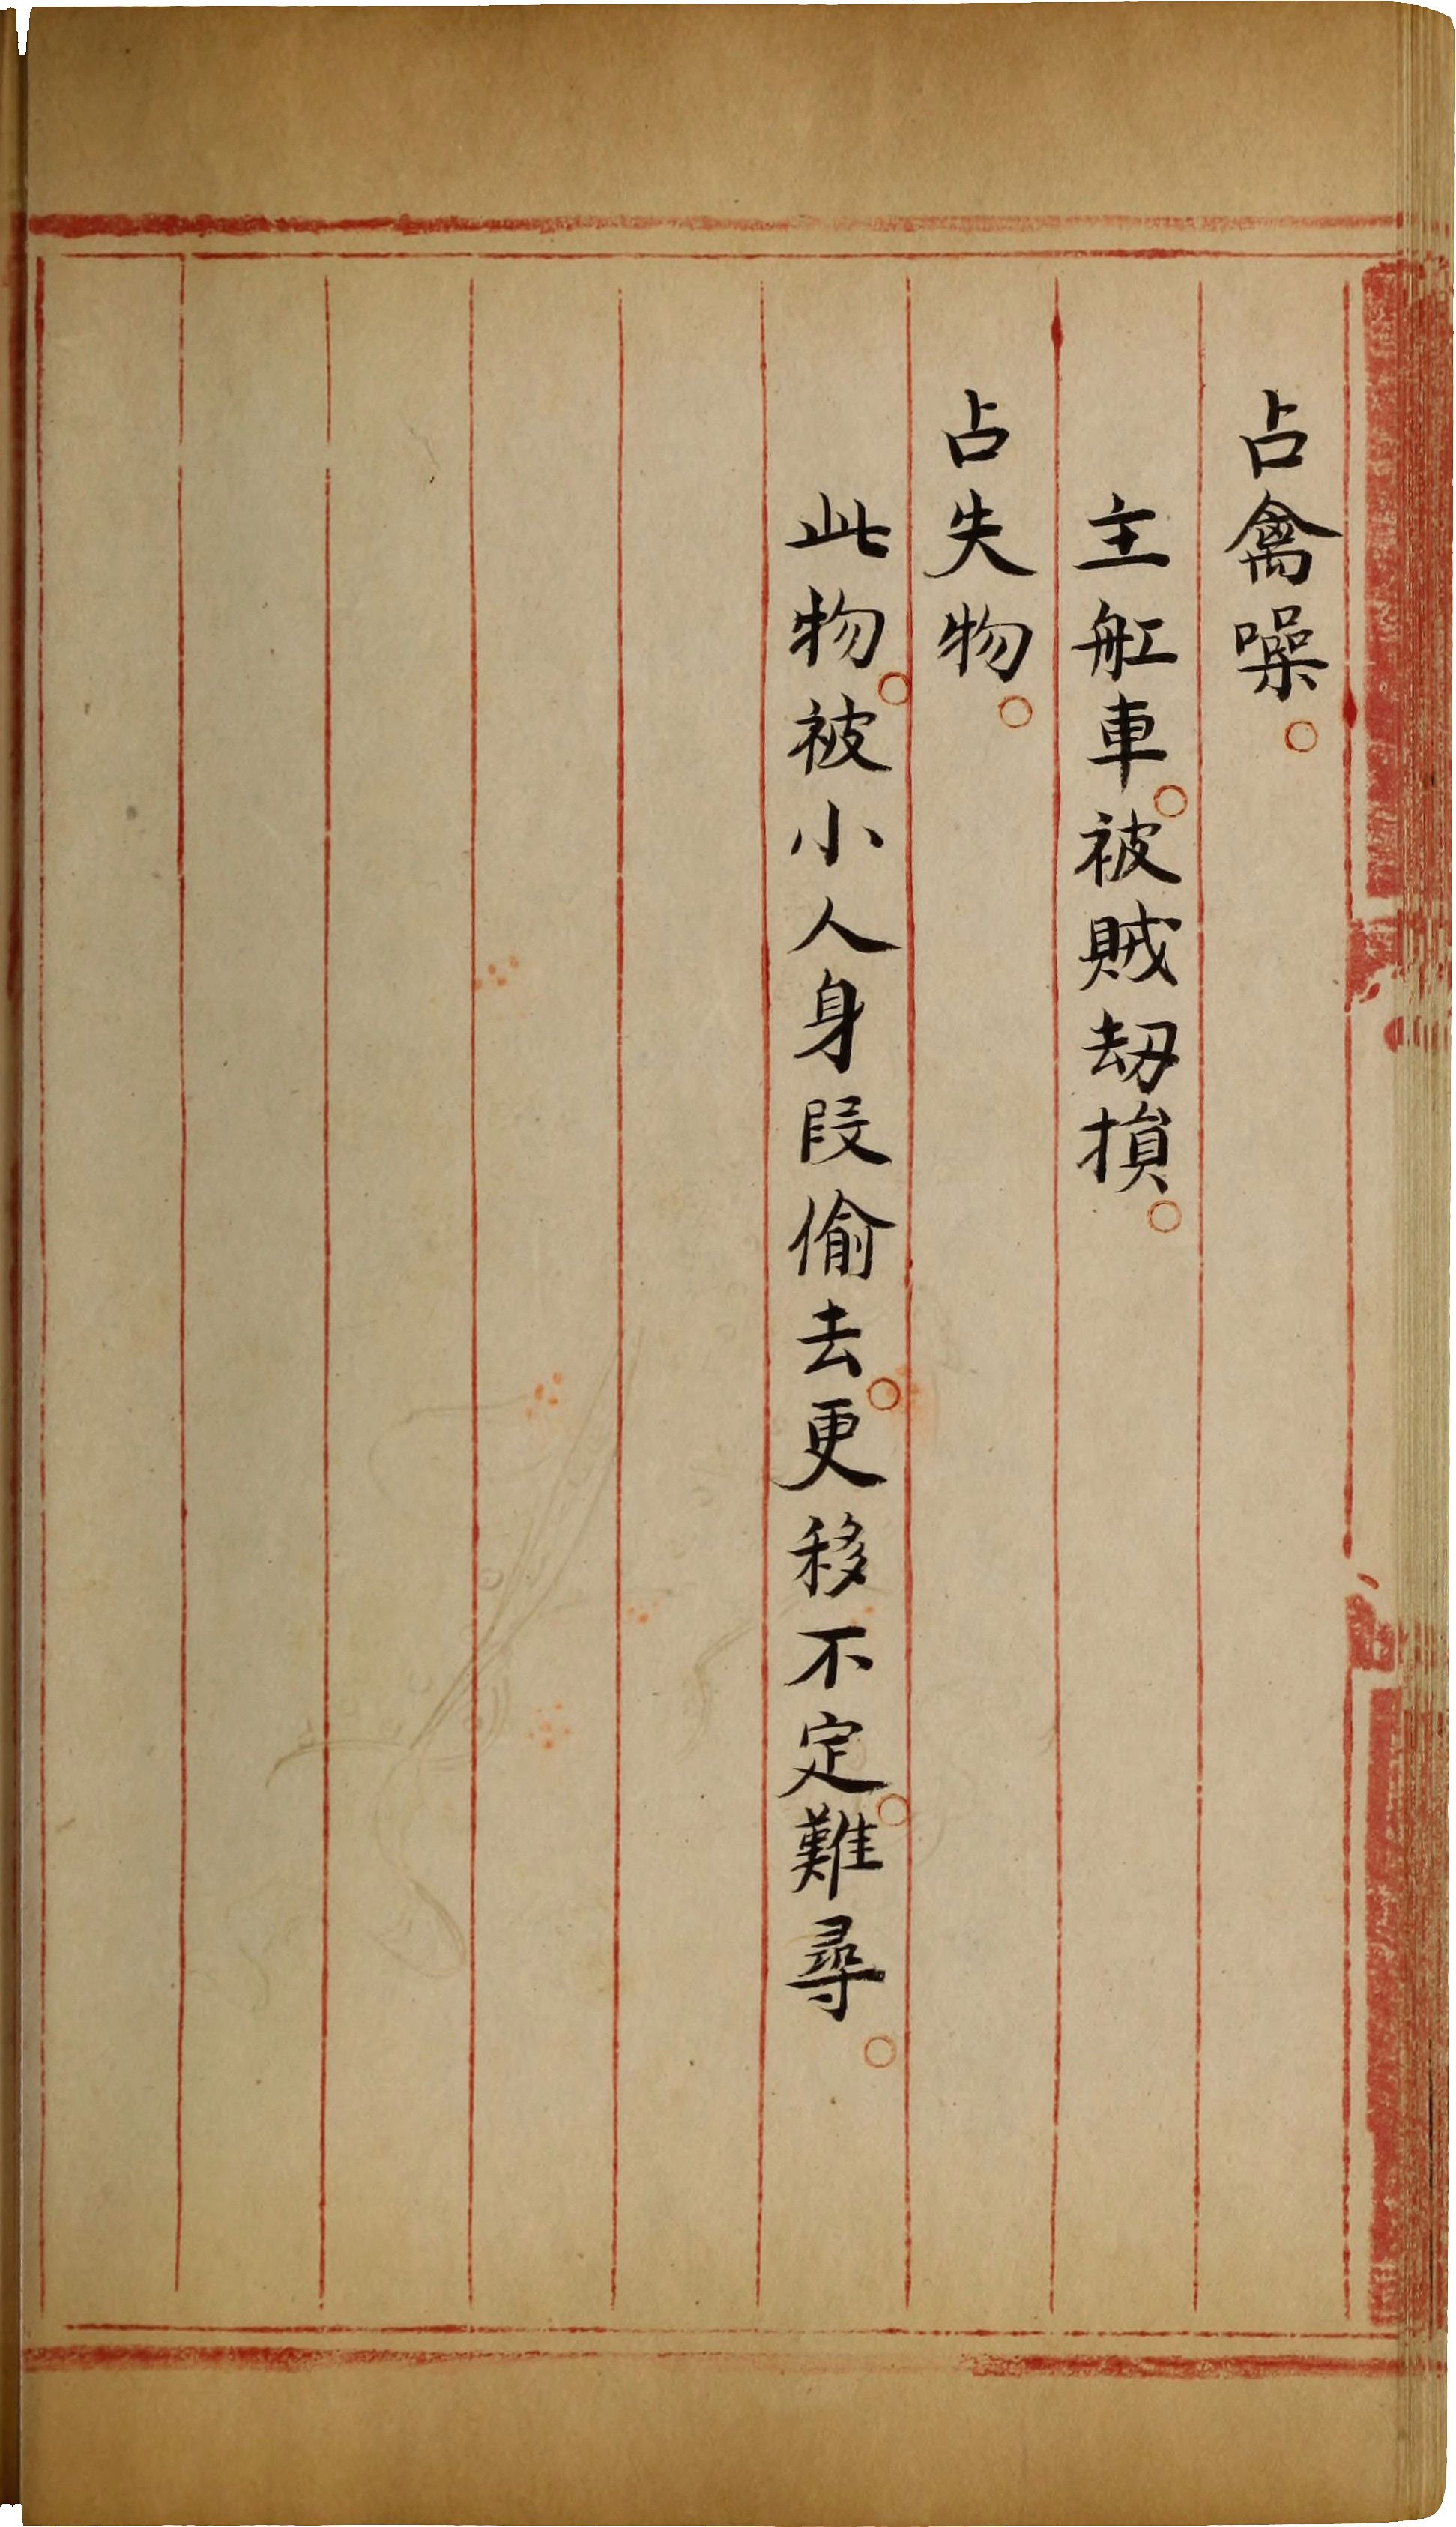 占禽噪。
主舡車。被賊刼損。
占失物。
此物。被小人身段偷去。更移不定。難尋。